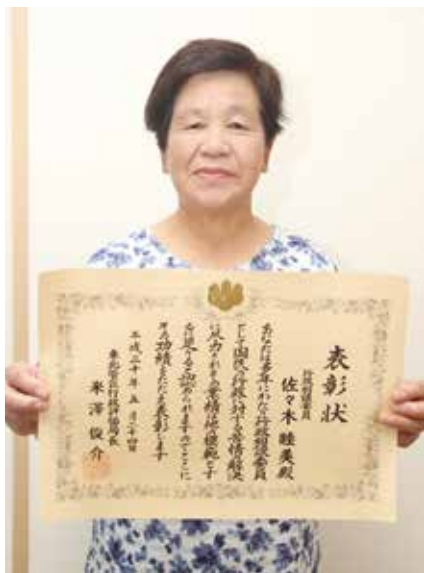 表彰状
行政相談委員
佐々木睦美殿
あなたは多年にわたり行政相談委員
として国民の行政に対する苦情解決
に尽力されその業績は他の模範とす
るに足ると認められますのでここに
その功績をたたえ表彰します
平成三十年五月二十四日
東北管区行政評価局長
米澤俊介